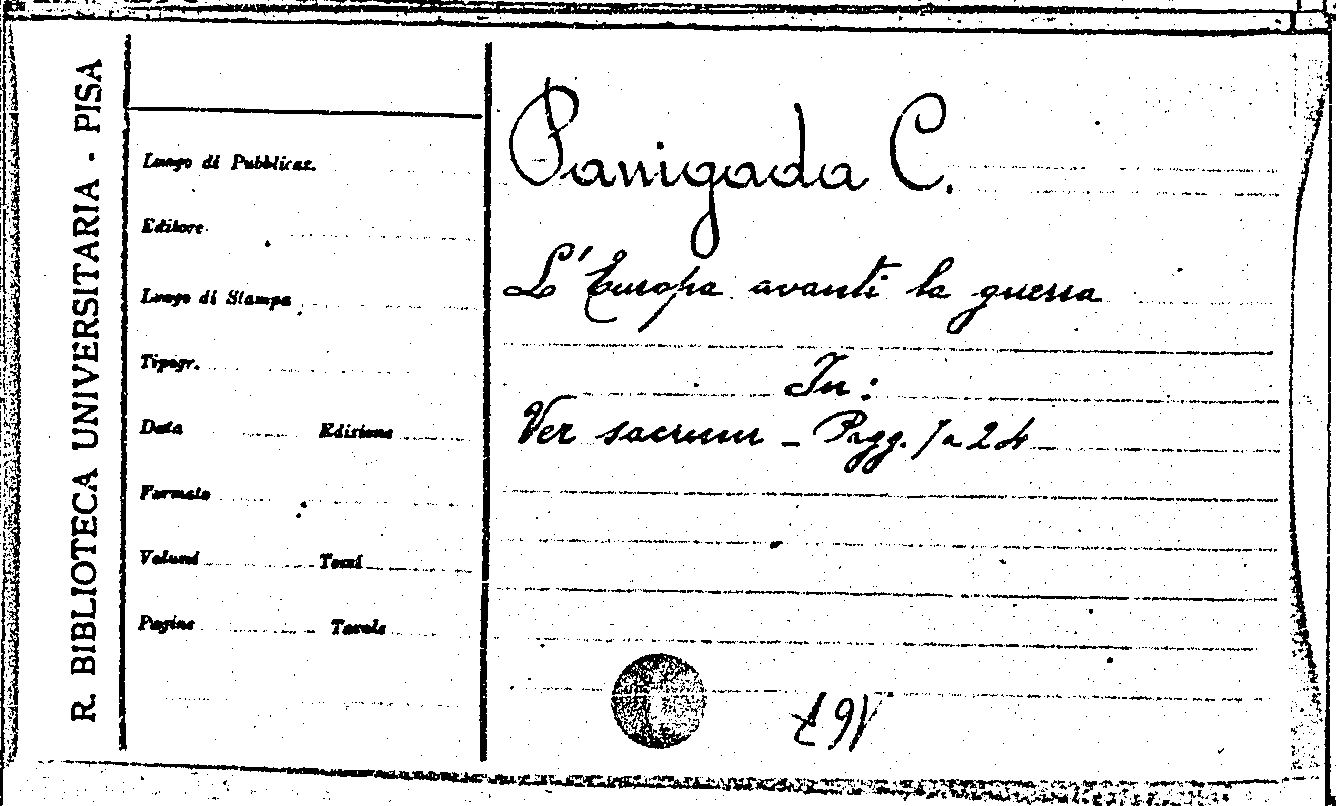 R. BIBLIOTECA UNIVERSITARIA - PISA
Luogo di Pubblicaz.
Editore
Luogo di Stampa
Tipogr.
Data Edizione
Formato
Volumi Tomi
Pagine Tavole
Panigada C.
L'Europa avanti la guerra
In:
Ver sacrum - Pagg. 1 a 24